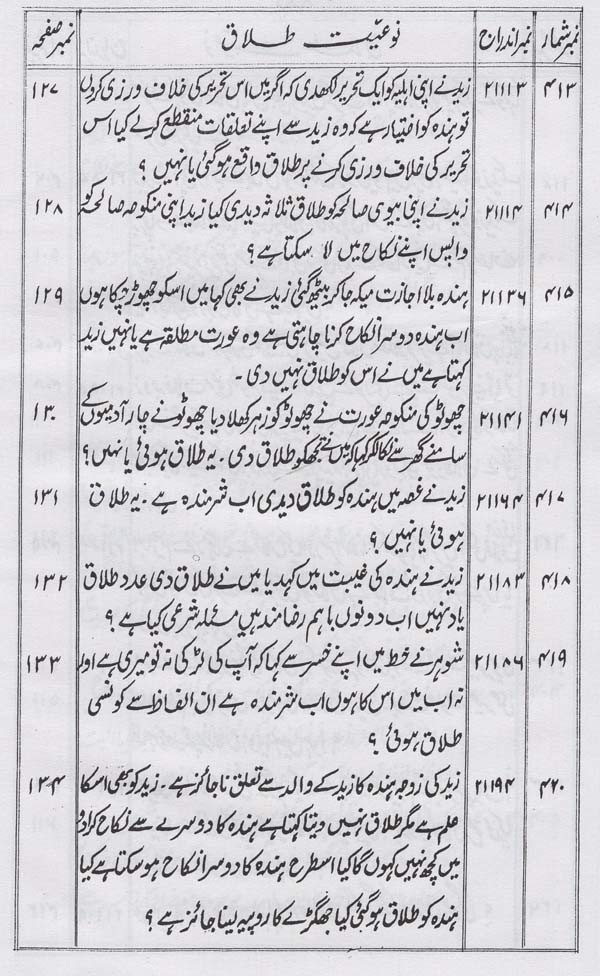 نمبر شمار نمبر اندراج نوعیت طلاق نمبر صفحہ
۴۱۳ ۲۱۱۱۳ زید نے اپنی اہلیہ کو ایک تحریر لکھدی کہ اگر میں اس تحریر کی خلاف ورزی کروں ۱۲۷
تو ہندہ کو اختیار ہے کہ وہ زید سے اپنے تعلقات منقطع کرلے کیا اس
تحریر کی خلاف ورزی کرنے پر طلاق واقع ہوگئی یا نہیں ؟
۴۱۴ ۲۱۱۱۴ زید نے اپنی بیوی صالحہ کو طلاق ثلاثہ دیدی کیا زید اپنی منکوحہ صالحہ کو ۱۲۸
واپس اپنے نکاح میں لا سکتا ہے ؟
۴۱۵ ۲۱۱۳۶ ہندہ بلا اجازت میکہ جاکر بیٹھ گئی زید نے بھی کہا میں اسکو چھوڑ چکا ہوں ۱۲۹
اب ہندہ دوسرا نکاح کرنا چاہتی ہے وہ عورت مطلقہ ہے یا نہیں زید
کہتا ہے میں نے اس کو طلاق نہیں دی ۔
۴۱۶ ۲۱۱۴۱ چھوٹو کی منکوحہ عورت نے چھوٹو کو زہر کھلا دیا چھوٹو نے چار آدمیوں کے ۱۳۰
سامنے گھر سے نکالکر کہا کہ میں نے تجھکو طلاق دی ۔ یہ طلاق ہوئی یا نہیں؟
۴۱۷ ۲۱۱۶۴ زید نے غصہ میں ہندہ کو طلاق دیدی اب شرمندہ ہے ۔ یہ طلاق ۱۳۱
ہوئی یا نہیں ؟
۴۱۸ ۲۱۱۸۳ زید نے ہندہ کی غیبت میں کہدیا میں نے طلاق دی عدد طلاق ۱۳۲
یاد نہیں اب دونوں باہم رضامند ہیں مسئلہ شرعی کیا ہے ؟
۴۱۹ ۲۱۱۸۶ شوہر نے خط میں اپنے خسر سے کہا کہ آپ کی لڑکی نہ تو میری ہے اور ۱۳۳
نہ اب میں اس کا ہوں اب شرمندہ ہے ان الفاظ سے کونسی
طلاق ہوئی ؟
۴۲۰ ۲۱۱۹۴ زید کی زوجہ ہندہ کا زید کے والد سے تعلق ناجائز ہے ۔ زید کو بھی اسکا ۱۳۴
علم ہے مگر طلاق نہیں دیتا کہتا ہے ہندہ کا دوسرے سے نکاح کرادو
میں کچھ نہیں کہوں گا کیا اسطرح ہندہ کا دوسرا نکاح ہوسکتا ہے کیا
ہندہ کو طلاق ہوگئی کیا جھگڑے کا روپیہ لینا جائز ہے ؟